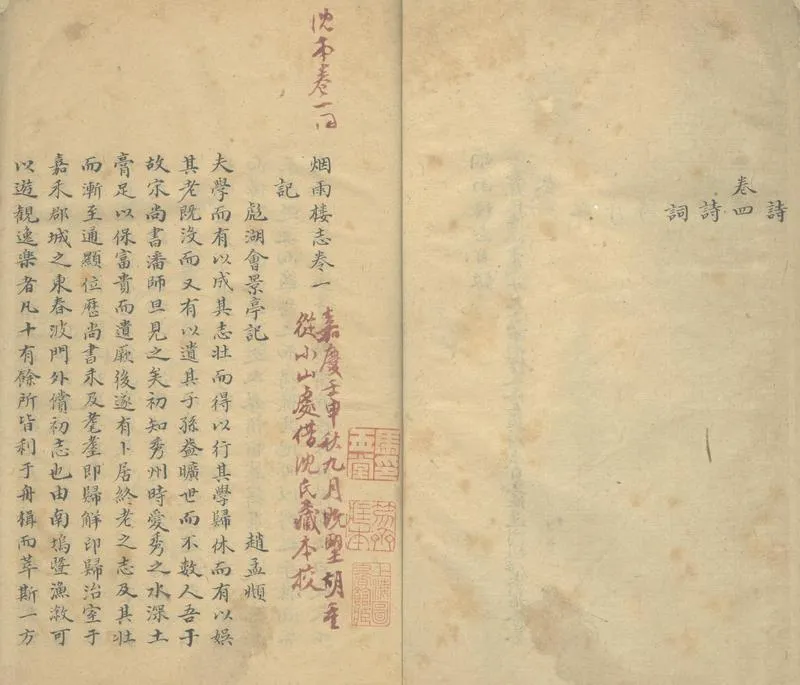 詩
卷四
詩
詞
沈本卷一同
烟雨楼志卷一
嘉慶壬申秋九月既望胡重
從小山處借沈氏藏本校
記
彪湖會景亭記 趙孟頫
夫學而有以成其志壯而得以行其學歸休而有以娛
其老既沒而又有以遺其子孫盖曠世而不数人吾于
故宋尚書潘師旦見之矣初知秀州時愛秀之水深土
膏足以保富貴而遺厥後遂有卜居終老之志及其壯
而漸至通顯位歷尚書未及耄耋即歸解印歸治室于
嘉禾郡城之東春波門外償初志也由南塢暨漁溆可
以遊観逸樂者凡十有餘所皆利于舟楫而萃斯一方